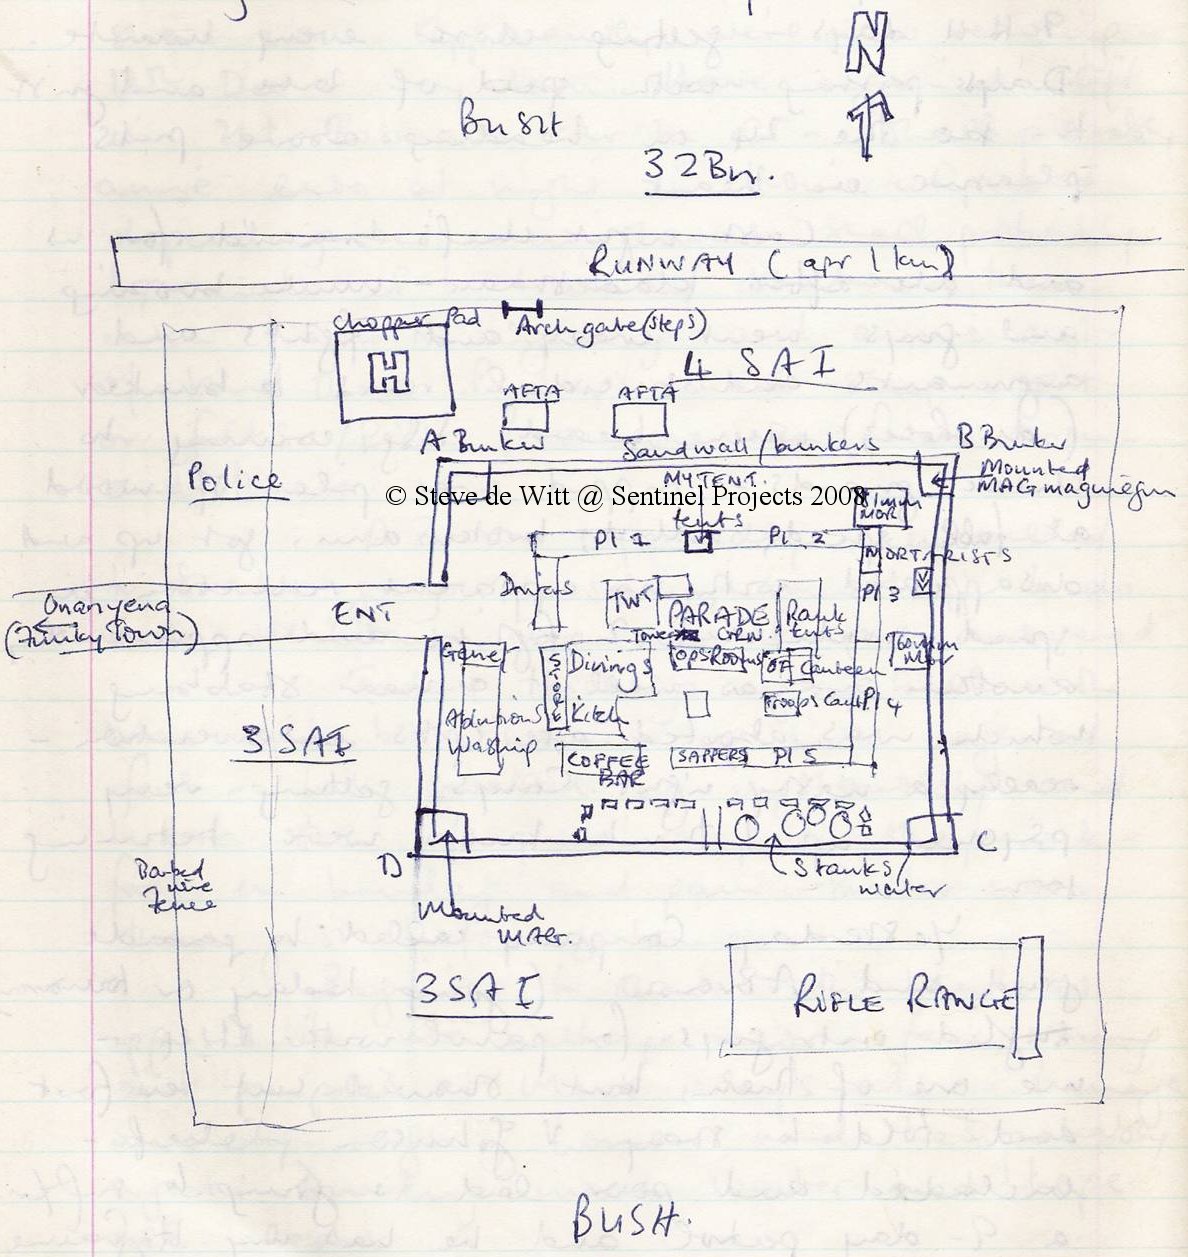 N
BUSH
32 Bn.
RUNWAY (apr 1 km)
Chopper Pad
Arch gate (steps)
H
4 SAI
AFTA
AFTA
A Bunker
Sandwall/bunkers
B Bunker
Mounted
MAG
Police
MY TENT.
© Steve de Witt @ Sentinel Projects 2008
81mm
MOR
tents
Pl 1
Pl 2
MORTARISTS
Drivers
TWT
PARADE
GRN.
Rank
tents
Pl 3
Onanyena
(Funky Town)
ENT
Tower
60mm
Mor
Gener
STORE
Dinings
OPS Rooms
OF Canteen
Ablutions
Washup
Kitch
Troops Cant
Pl 4
3 SAI
COFFEE
BAR
SAPPERS
Pl 5
D
C
Stanks
water
Barbed
wire
Fence
Mounted
MAG.
3 SAI
RIFLE RANGE
BUSH.